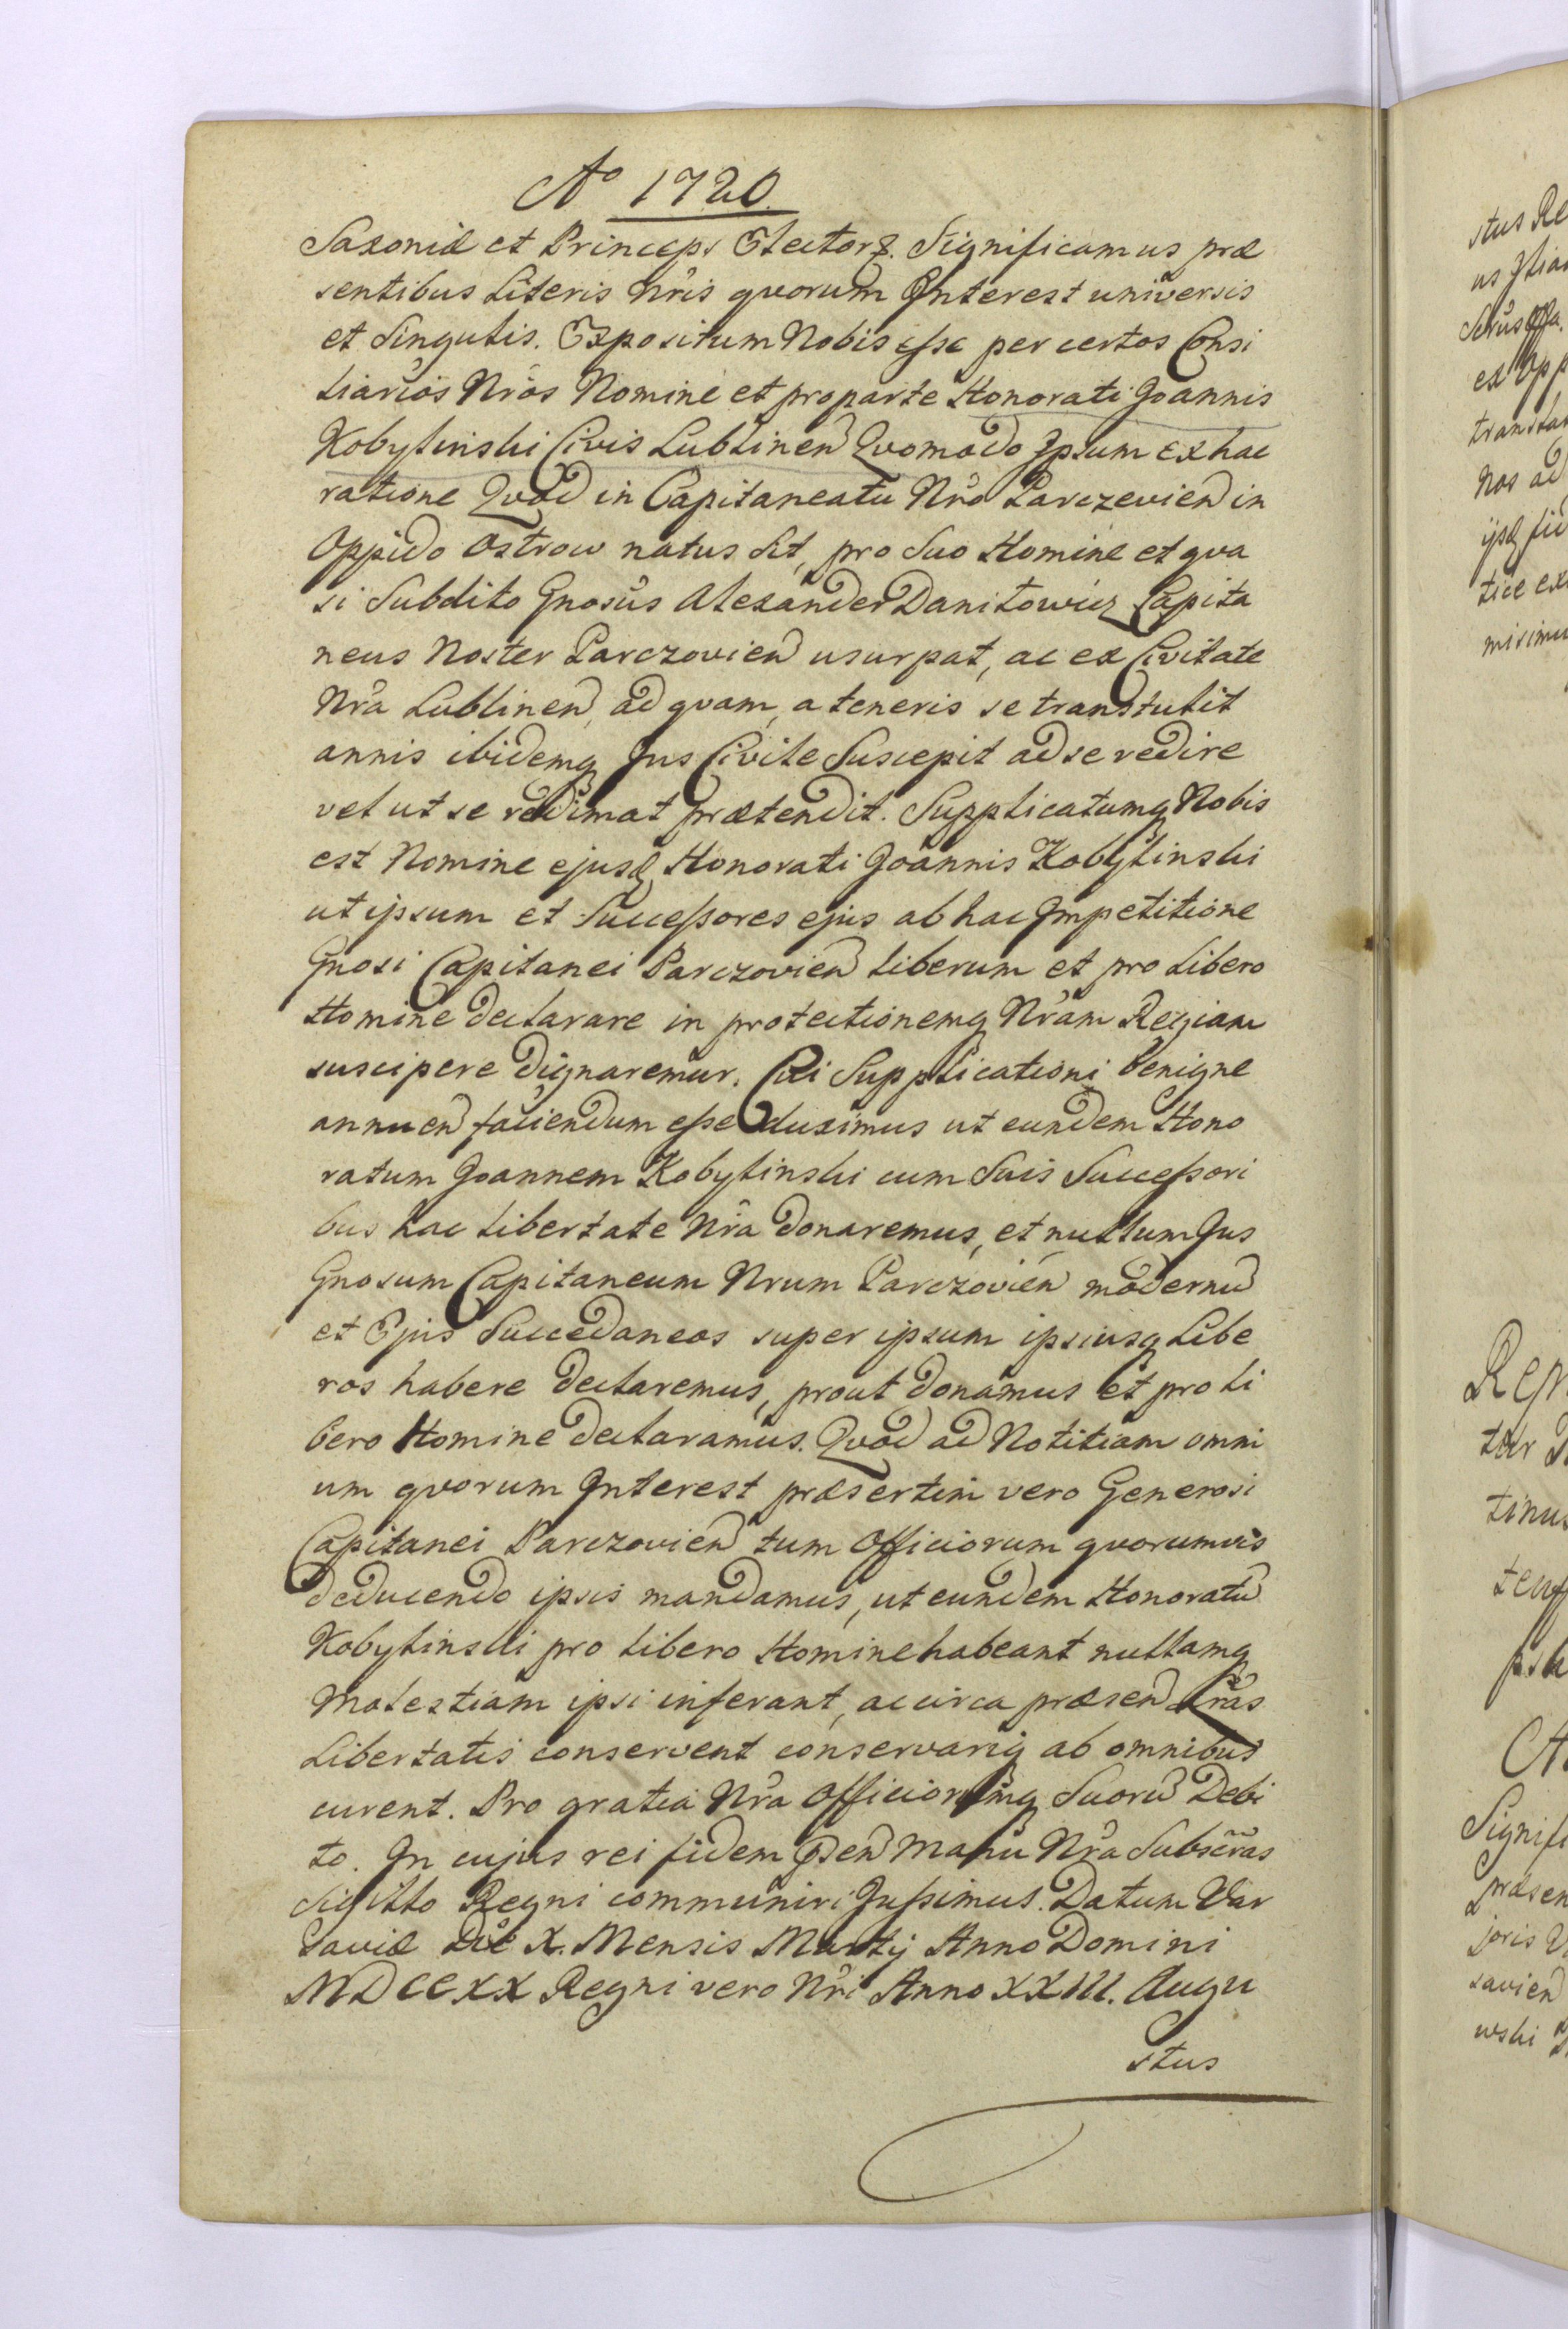 Ao 1720
Saxoniæ et Princeps Elector. Significamus præ
sentibus Literis Nris qvorum Interest universis
et Singulis. Expositum Nobis esse per certos Consi
liarios Nros Nomine et pro parte Honorati Joannis
Kobyliński Civis Lublinen Qvomodo Ipsum Ex hac
ratione Qvod in Capitaneatu Nro Parczevien in
Oppido Ostrow natus sit, pro Suo Homine et qva
si Subdito Gnosus Alexander Daniłowicz Capita
neus Noster Parczovien usurpat, ac ex Civitate
Nra Lublinen, ad qvam, a teneris se transtulit
annis ibidemq Jus Civile Suscepit ad se redire
vel ut se redimat prætendit. Supplicatumq Nobis
est Nomine ejusd Honorati Joannis Kobyliński
ut ipsum et Successores ejus ab hac Impetitione
Gnosi Capitanei Parczovien liberum et pro Libero
Homine declarare in protectionemq Nram Regiam
suscipere dignaremur. Cui Supplicationi benigne
annuen faciendum esse duximus ut eundem Hono
ratum Joannem Kobyliński cum Suis Successori
bus hac libertate Nra donaremus, et nullum Jus
Gnosum Capitaneum Nrum Parczovien modernu
et Ejus Succedaneos super ipsum ipsiusq Libe
ros habere declaremus, prout donamus et pro li
bero Homine declaramus. Qvod ad Notitiam omni
um qvorum Interest præsertim vero Generosi
Capitanei Parczovien tum Officiorum qvorumvis
deducendo ipsis mandamus, ut eundem Honoratu
Kobyliński pro Libero Homine habeant nullamq
Molestiam ipsi inferant, ac circa præsen Lras
Libertatis conservent conservariq ab omnibus
curent. Pro gratia Nra Officiorumq Suoru Debi
to. In cujus rei fidem psen Manu Nra Subscras
Sigillo Regni communiri Jussimus. Datum Var
saviæ Die X. Mensis Martij Anno Domini
MDCCXX Regni vero Nri Anno XXIII. Augu
stus
stus Re
us
ex Opp
nos ad
tice ex
tinus
Signifi
præsen
joris
savien
wski